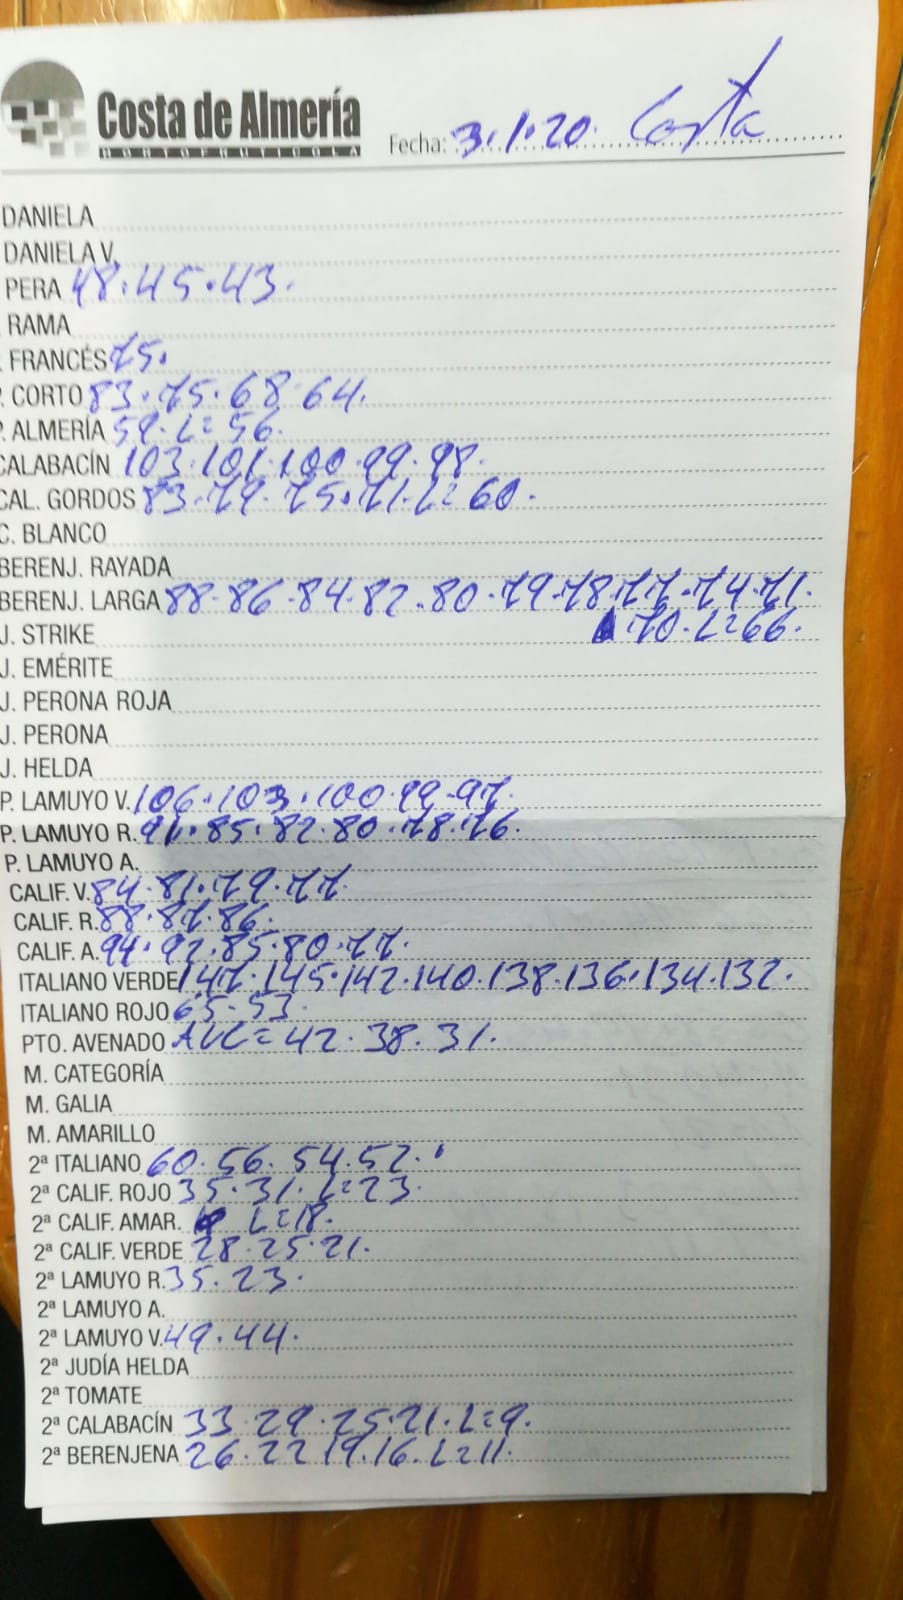 Costa de Almería
HORTOFRUTICOLA
Fecha: 3.1.20. Costa
DANIELA
DANIELA V.
PERA 48.45.43.
RAMA
FRANCÉS 75.
P. CORTO 83.75.68.64.
P. ALMERÍA 59.L=56.
CALABACÍN 103.101.100.99.98.
CAL. GORDOS 83.79.75.71.L=60.
C. BLANCO
BERENJ. RAYADA
BERENJ. LARGA 88.86.84.82.80.79.78.77.74.71.
J. STRIKE 70.L=66.
J. EMÉRITE
J. PERONA ROJA
J. PERONA
J. HELDA
P. LAMUYO V. 106.103.100.99.97.
P. LAMUYO R. 91.85.82.80.78.76.
P. LAMUYO A.
CALIF. V. 84.81.79.77.
CALIF. R. 88.87.86.
CALIF. A. 94.92.85.80.77.
ITALIANO VERDE 147.145.142.140.138.136.134.132.
ITALIANO ROJO 65.53.
PTO. AVENADO AVE=42.38.31.
M. CATEGORÍA
M. GALIA
M. AMARILLO
2ª ITALIANO 60.56.54.52.
2ª CALIF. ROJO 35.31.L=23.
2ª CALIF. AMAR. L=18.
2ª CALIF. VERDE 28.25.21.
2ª LAMUYO R. 35.23.
2ª LAMUYO A.
2ª LAMUYO V. 49.44.
2ª JUDÍA HELDA
2ª TOMATE
2ª CALABACÍN 33.29.25.21.L=9.
2ª BERENJENA 26.22.19.16.L=11.